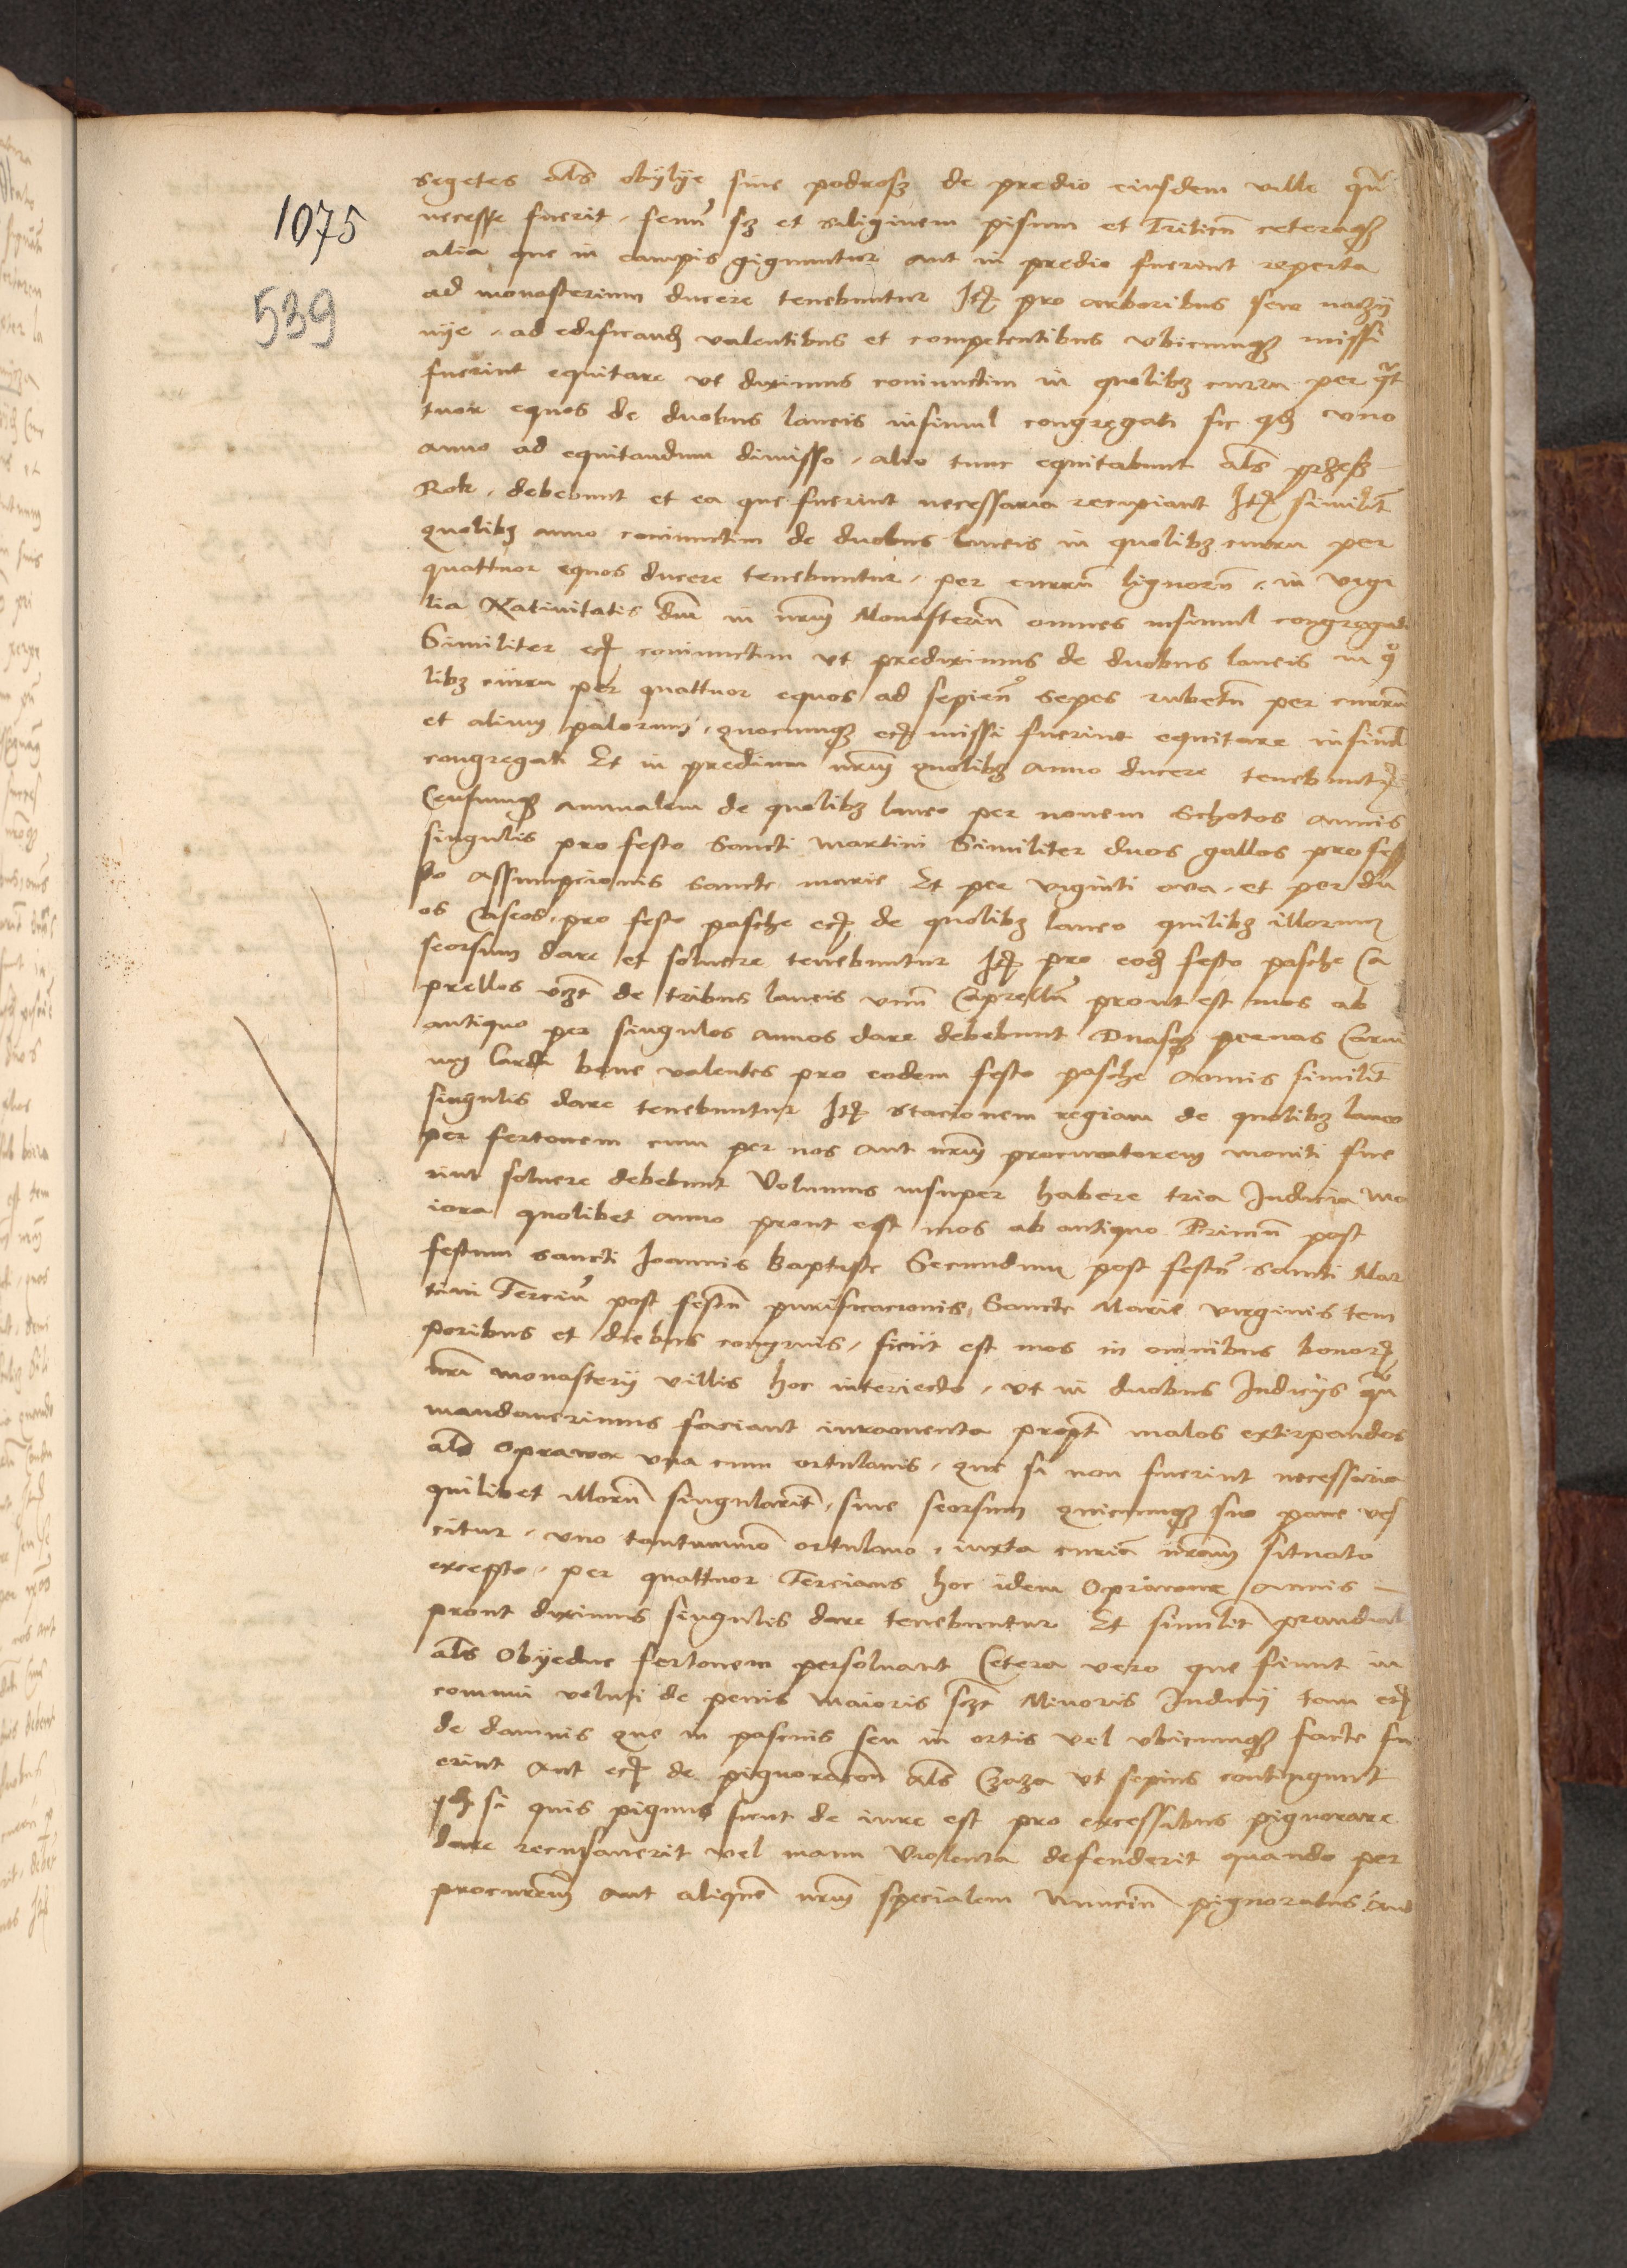 1075
539
segetes als obylye siue podrosz de predio eiusdem ville qn̄
necesse fuerit, fenū sz et siliginem pisum et Triticū ceteraqz
alia que in campis gignuntur aut in predio fuerint reperta
ad monasterium ducere tenebuntur Itē pro arboribus seu
ad edificand valentibus et competentibus vbicumqz missi
fuerint equitare vt diximus coniunctim in quolibz curru per qt
tuor equos de duobus laneis insimul congregati sic qd vno
anno ad equitandum dimisso, alio tunc equitabunt als przesz
Rok, debebunt et ea que fuerint necessaria recipiant Itē similit
quolibz anno coniunctim de duobus laneis in quolibz curru per
quattuor equos ducere tenebuntur, per currū lignorū, in vigi
lia Natiuitatis dni in nrm Monasteriū omnes insimul congregati
Similiter ecz coniunctim vt prediximus de duobus laneis in quo
libz curru per quattuor equos ad sepien sepes rubetū per currū
et alium palorum, quocumqz ecz missi fuerint equitare insimul
congregati Et in predium nrm quolibz anno ducere tenebuntr
Censumqz annualem de quolibz laneo per nouem Schotos annis
singulis pro festo Sancti Martini Similiter duos gallos pro fes
to Assumpcionis sancte marie Et per viginti oua, et per du
os Caseos, pro festo pasche ecz de quolibz laneo quilibz illorum
seorsum dare et soluere tenebuntur Itē pro eod festo pasche Ca
prellos vzt de tribus laneis vnū Caprellū prout est mos ab
antiquo per singulos annos dare debebunt Duasqz pernas Carni
um lardi bene valentes pro eodem festo pasche annis similit
singulis dare tenebuntur Itē stacionem regiam de quolibz laneo
per fertonem cum per nos aut nrm procuratorem moniti fue
rint soluere debebunt Volumus insuper habere tria Iudicia ma
iora quolibet anno prout est mos ab antiquo Primū post
festum sancti Joannis Baptiste Secundum post festū sancti Mar
tini Terciū post festū purificacionis Sancte Marie virginis tem
poribus et diebus congruis, sicut est mos in omnibus bonorz
nri monastery villis hoc interiecto, vt in duobus Iudicys qn̄
mandauerimus faciant iuramenta propt malos extirpandos
als Oprawa vna cum ortulanis, que si non fuerint necessaria
quilibet illorū singularit, siue seorsum quicumqz suo pane ves
citur, vno tantummo ortulano, iuxta curiā nram situato
excepto, per quattuor Tercians hoc idem Oprawne annis
prout diximus singulis dare tenebuntur Et similit prandial
als Obyedne fertonem persoluant Cetera vero que fiunt in
communi veluti de penis Maioris sczt Minoris Iudicij tam ecz
de damnis que in pascuis seu in ortis vel vbicumqz facte fu
erint Aut ecz de pignoracōn als Czaza vt sepius contingunt
qd si quis pignus sicut de iure est pro excessibus pignorare
dare recusauerit vel manu Violenta defenderit quando per
procurem aut aliquē nrm specialem Nunciū pignoratus